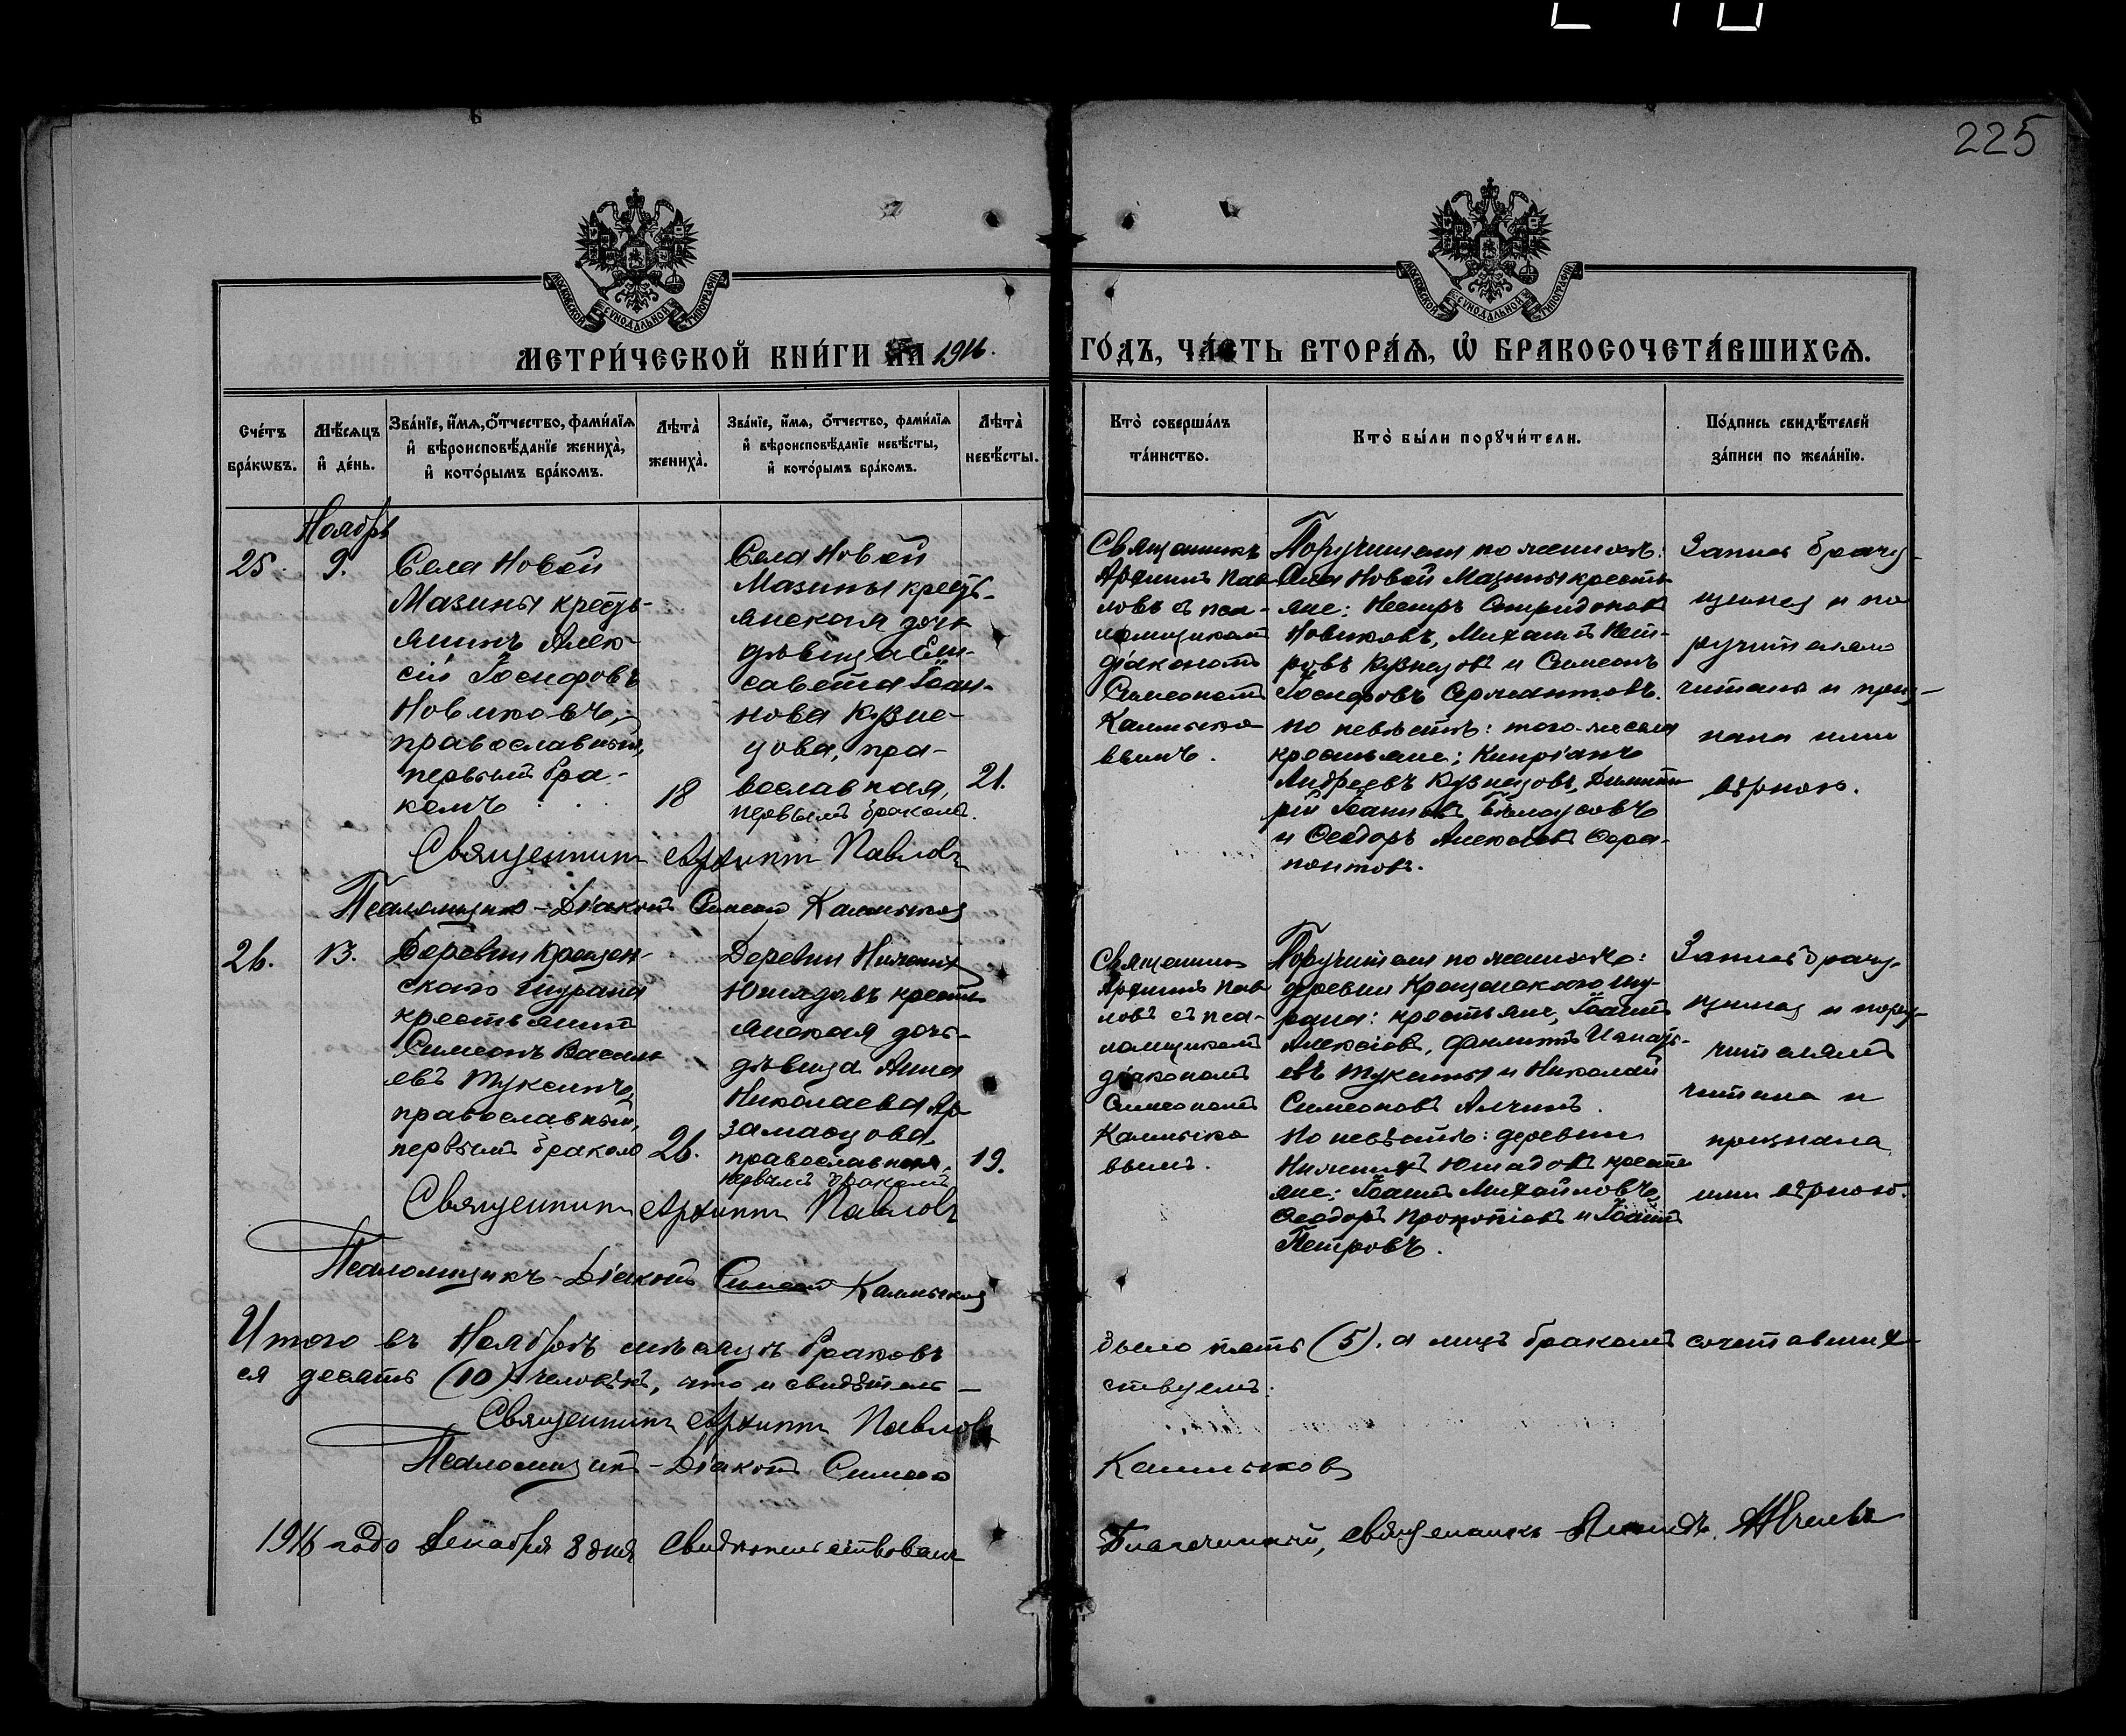 225
МОСКОВСКОЙ СУНОДАЛЬНОЙ ТИПОГРАФІИ
МОСКОВСКОЙ СУНОДАЛЬНОЙ ТИПОГРАФІИ
МЕТРИ́ЧЕСКОЙ КНИ́ГИ НА 1916.
ГО́ДЪ, ЧА́СТЬ ВТОРА́Я, Ѡ БРАКОСОЧЕТА́ВШИХСЯ.
Сче́тъ
бра́кѡвъ.
Мѣ́сяцъ
и҆ де́нь.
Зва́нїе, и҆́мя, о҆́тчество, фами́лїя
и҆ вѣроисповѣ́данїе жениха̀,
и҆ кото́рымъ бра́комъ.
Лѣта̀
жениха̀.
Зва́нїе, и҆́мя, о҆́тчество, фами́лїя
и҆ вѣроисповѣ́данїе невѣ́сты,
и҆ кото́рымъ бра́комъ.
Лѣта̀
невѣ́сты.
Кто̀ соверша́лъ
та́инство.
Кто̀ бы́ли порꙋчи́тели.
По́дпись свидѣ́телей
за́писи по жела́нїю.
Ноябрь
25.
9.
Села Новой
Мазины кресть-
янинъ Алек-
сій Іосифовъ
Новиковъ,
православный,
первымъ бра-
комъ
18
Села Новой
Мазины кресть-
янская дочь
дѣвица Ели-
савета Іоан-
нова Кузне-
цова, пра-
вославная,
первымъ бракомъ.
21.
Священникъ
Архиппъ Пав-
ловъ съ пса-
ломщикомъ
діакономъ
Симеономъ
Калмыко
вымъ.
Поручители по женихѣ:
Села Новой Мазины кресть-
яне: Несторъ Спиридоновъ
Новиковъ, Михаилъ Пет-
ровъ Кузнецовъ и Симеонъ
Іосифовъ
по невѣстѣ: того-же села
крестьяне: Кипріанъ
Андреевъ Кузнецовъ, Димит-
рій Іоанновъ Бѣлоусовъ
и Ѳеодоръ Алексѣевъ Фера-
понтовъ.
Запись брачу-
щимся и по
ручителямъ
читана и приз-
нана ими
вѣрною.
Священникъ Архиппъ Павловъ
Псаломщикъ-Діаконъ Симеонъ Калмыковъ
26.
13.
Деревни Крещен-
скаго Шурана
крестьянинъ
Симеонъ Василь
евъ Туксинъ,
православный,
первымъ бракомъ
26.
Деревни Нижнихъ
Юшадовъ кресть
янская дочь-
дѣвица Анна
Николаева Ар-
замасцова
православная,
первымъ бракомъ
19.
Священникъ
Архиппъ Пав
ловъ съ пса-
ломщикомъ
діакономъ
Симеономъ
Калмыко
вымъ.
Поручители по женихѣ:
деревни Крещенскаго Шу-
рана: крестьяне, Іоаннъ
Алексіевъ, Филиппъ Игнать-
евъ и Николай
Симеоновъ
По невѣстѣ: деревни
Нижнихъ Юшадовъ кресть
яне: Іоаннъ Михайловъ,
Ѳеодоръ Прокопіевъ и Іоаннъ
Петровъ.
Запись брачу-
щимся и пору-
чителямъ
читана и
признана
ими вѣрною.
Священникъ Архиппъ Павловъ
Псаломщикъ-Діаконъ Симеонъ Калмыковъ
Итого въ Ноябрѣ мѣсяцѣ браковъ было пять (5). а лицъ бракомъ сочетавших
ся десять (10) человѣкъ, что и свидѣтель-
ствуемъ.
Священникъ Архиппъ Павловъ
Псаломщикъ-Діаконъ Симеонъ Калмыковъ
1916 года Декабря 8 дня Свидѣтельствовалъ Благочинный, священникъ